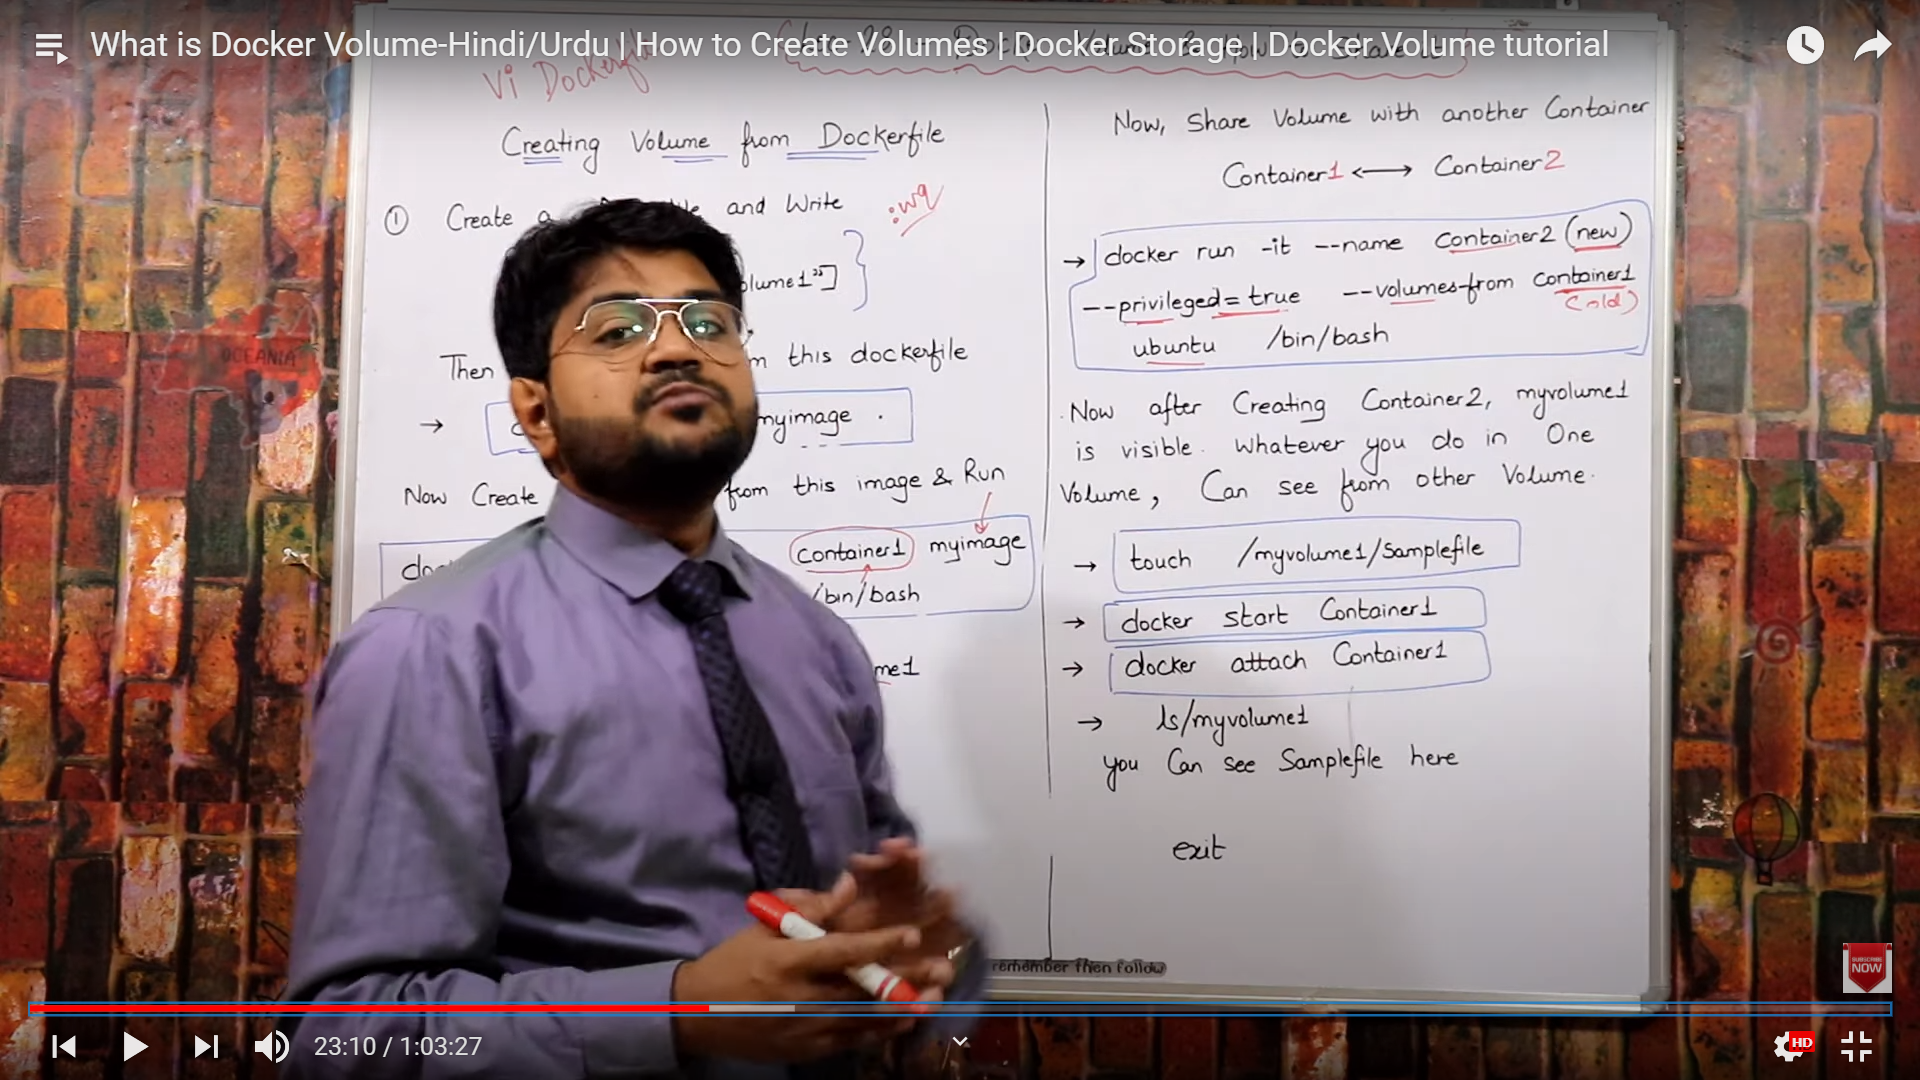 What is Docker Volume-Hindi/Urdu | How to Create Volumes | Docker Storage | Docker Volume tutorial
Vi Dockerfile
Creating Volume from Dockerfile
① Create a and Write
:wq
olume1"]
Then this dockerfile
→ myimage .
Now Create from this image & Run
container1 myimage
/bin/bash
me1
Now, Share Volume with another Container
Container1 ⟷ Container2
→ docker run -it --name Container2 (new)
--privileged=true --volumes-from Container1
(old)
ubuntu /bin/bash
Now after Creating Container2, myvolume1
is visible. Whatever you do in One
Volume, Can see from other Volume.
→ touch /myvolume1/Samplefile
→ docker start Container1
→ docker attach Container1
→ ls/myvolume1
you Can see Samplefile here
exit
remember then follow
OCEANIA
SUBSCRIBE
NOW
23:10 / 1:03:27
HD